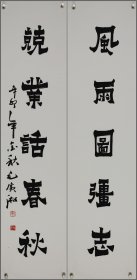 風雨圖彊志
兢業話春秋
辛卯年秋